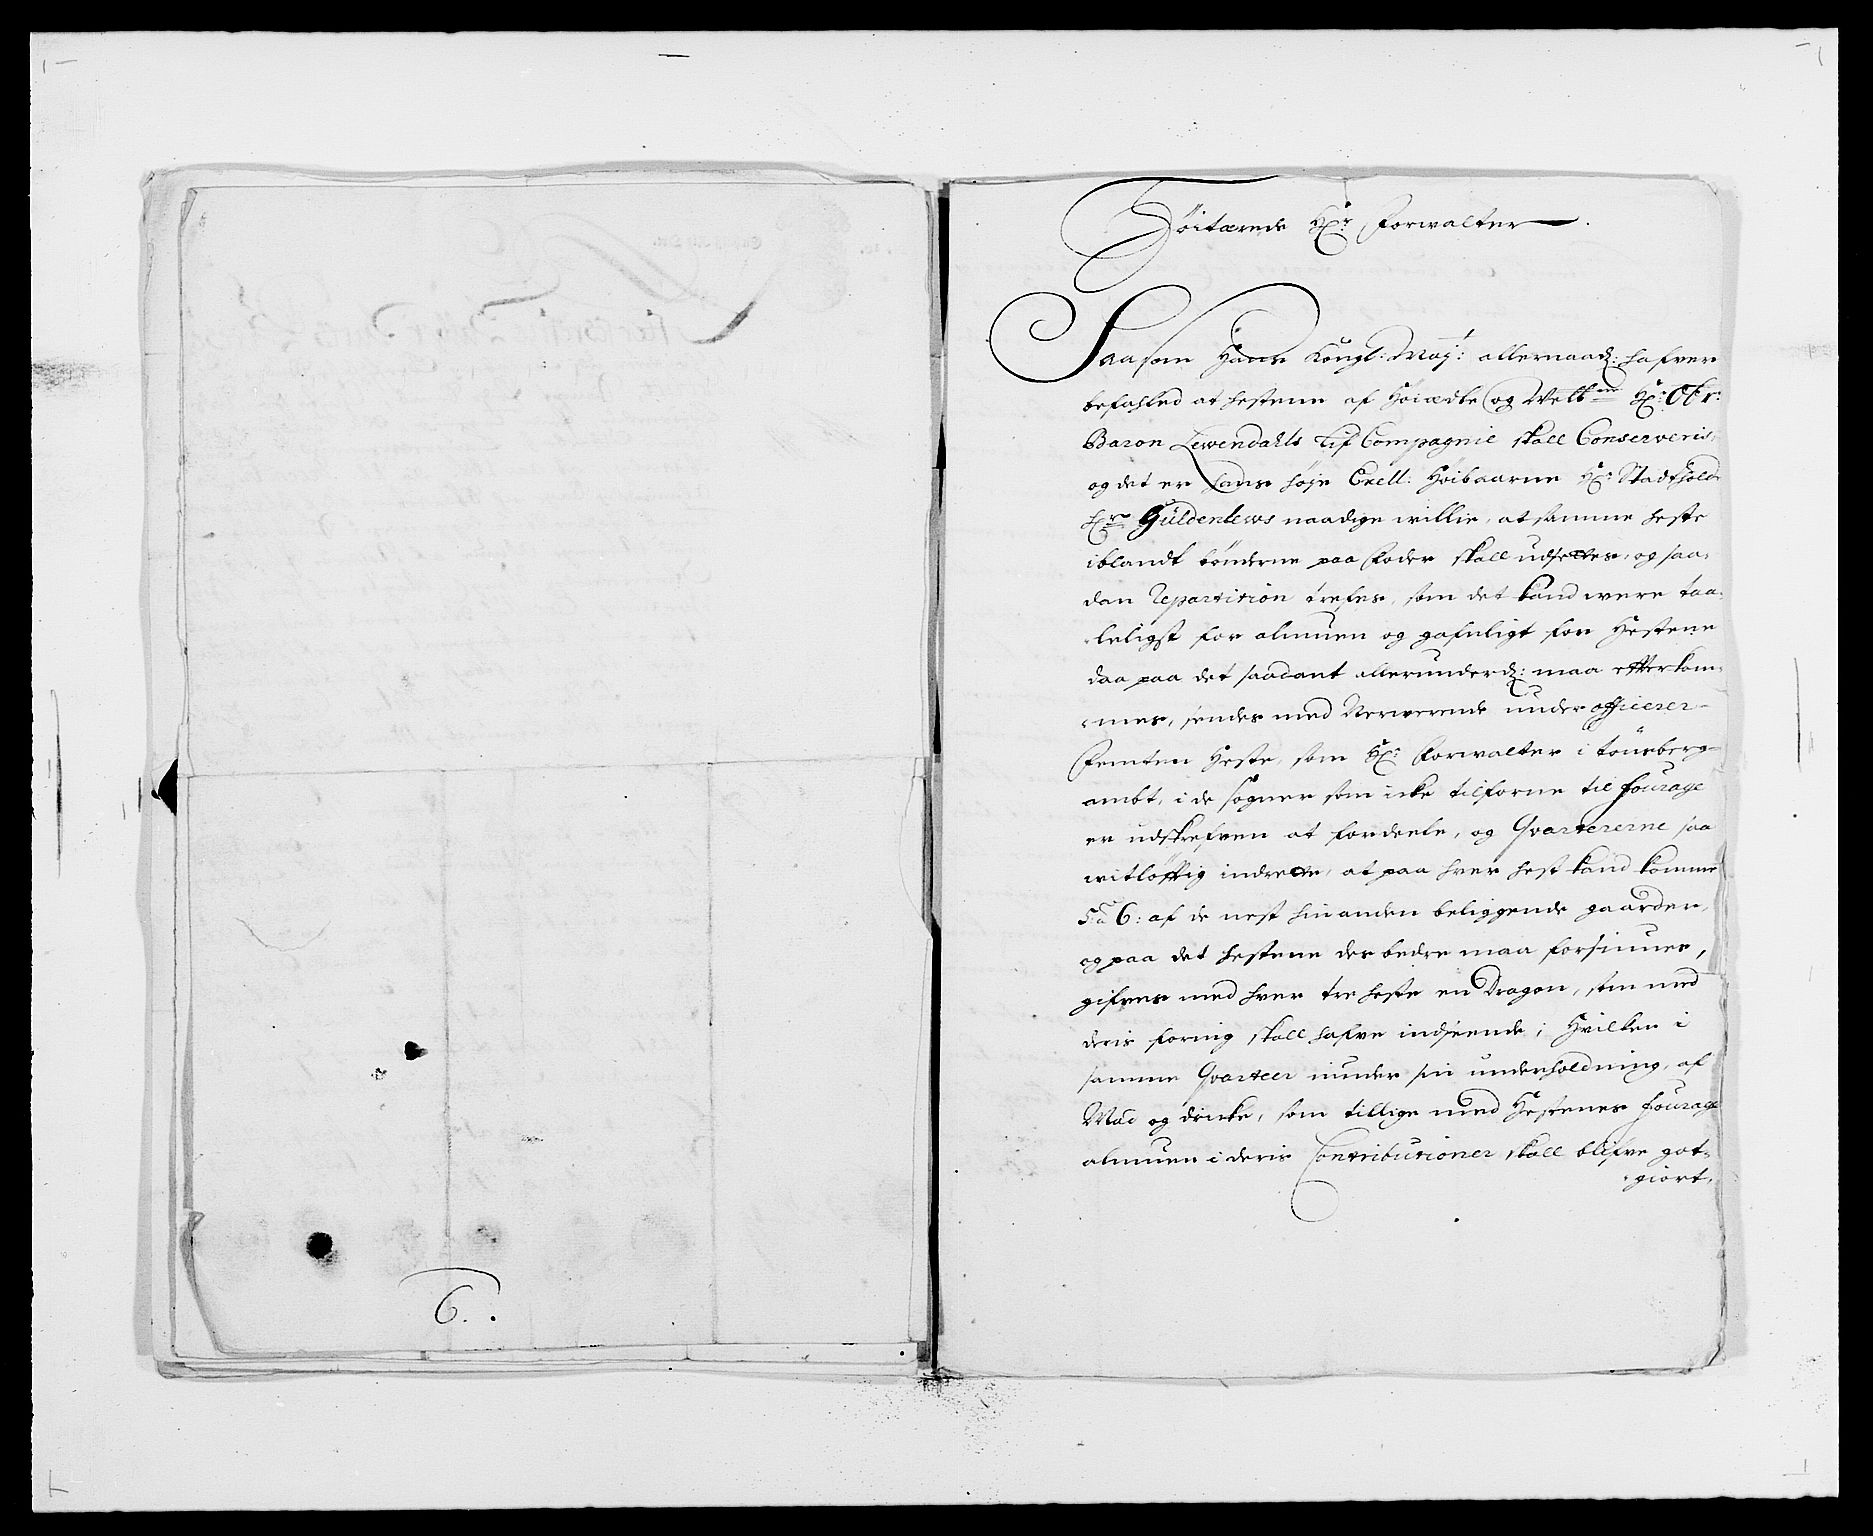 6.
Høitærede Hr: Forwalter.
Saasom Hans Kongl: May: allernaad: hafver
befahled at hestene af Høiædle og Welb.ne Hr: Obr:
Baron Lewendahls Lif Compagnie skall Conserveris,
og det er hans høje Excell: Høibaarne Hr: Stadthold
Hr. Güldenlews naadige willie, at samme heste
iblandt bønderne paa Foder skall udsettes, og saa-
dan repartition trefes, som det kand were taa-
leligst for almuen og gafnligt for Hestene
daa paa det saadant allerunderd: maa efterkom-
mes, sendes med Nerwerende under officerer
Femten Heste, som Hr: Forwalter i Tønsberg
ambt, i de sogner som icke tilforne til fourage
er udskrefven at fordeele, og Qvartererne saa
witløftig indrette, at paa hver hest kand komme
5 à 6: af de nest hinanden beliggende gaarder,
og paa det hestene des bedre maa forsinnes,
gifves med hver tre heste en Dragon, som med
deris foring skall hafve indseende, Hvilken i
samme Qvarteer niuder sin underholdning, af
Mad og dricke, som tillige med Hestenes fourage
almuen i deris Contributioner skall blifve got-
giort,